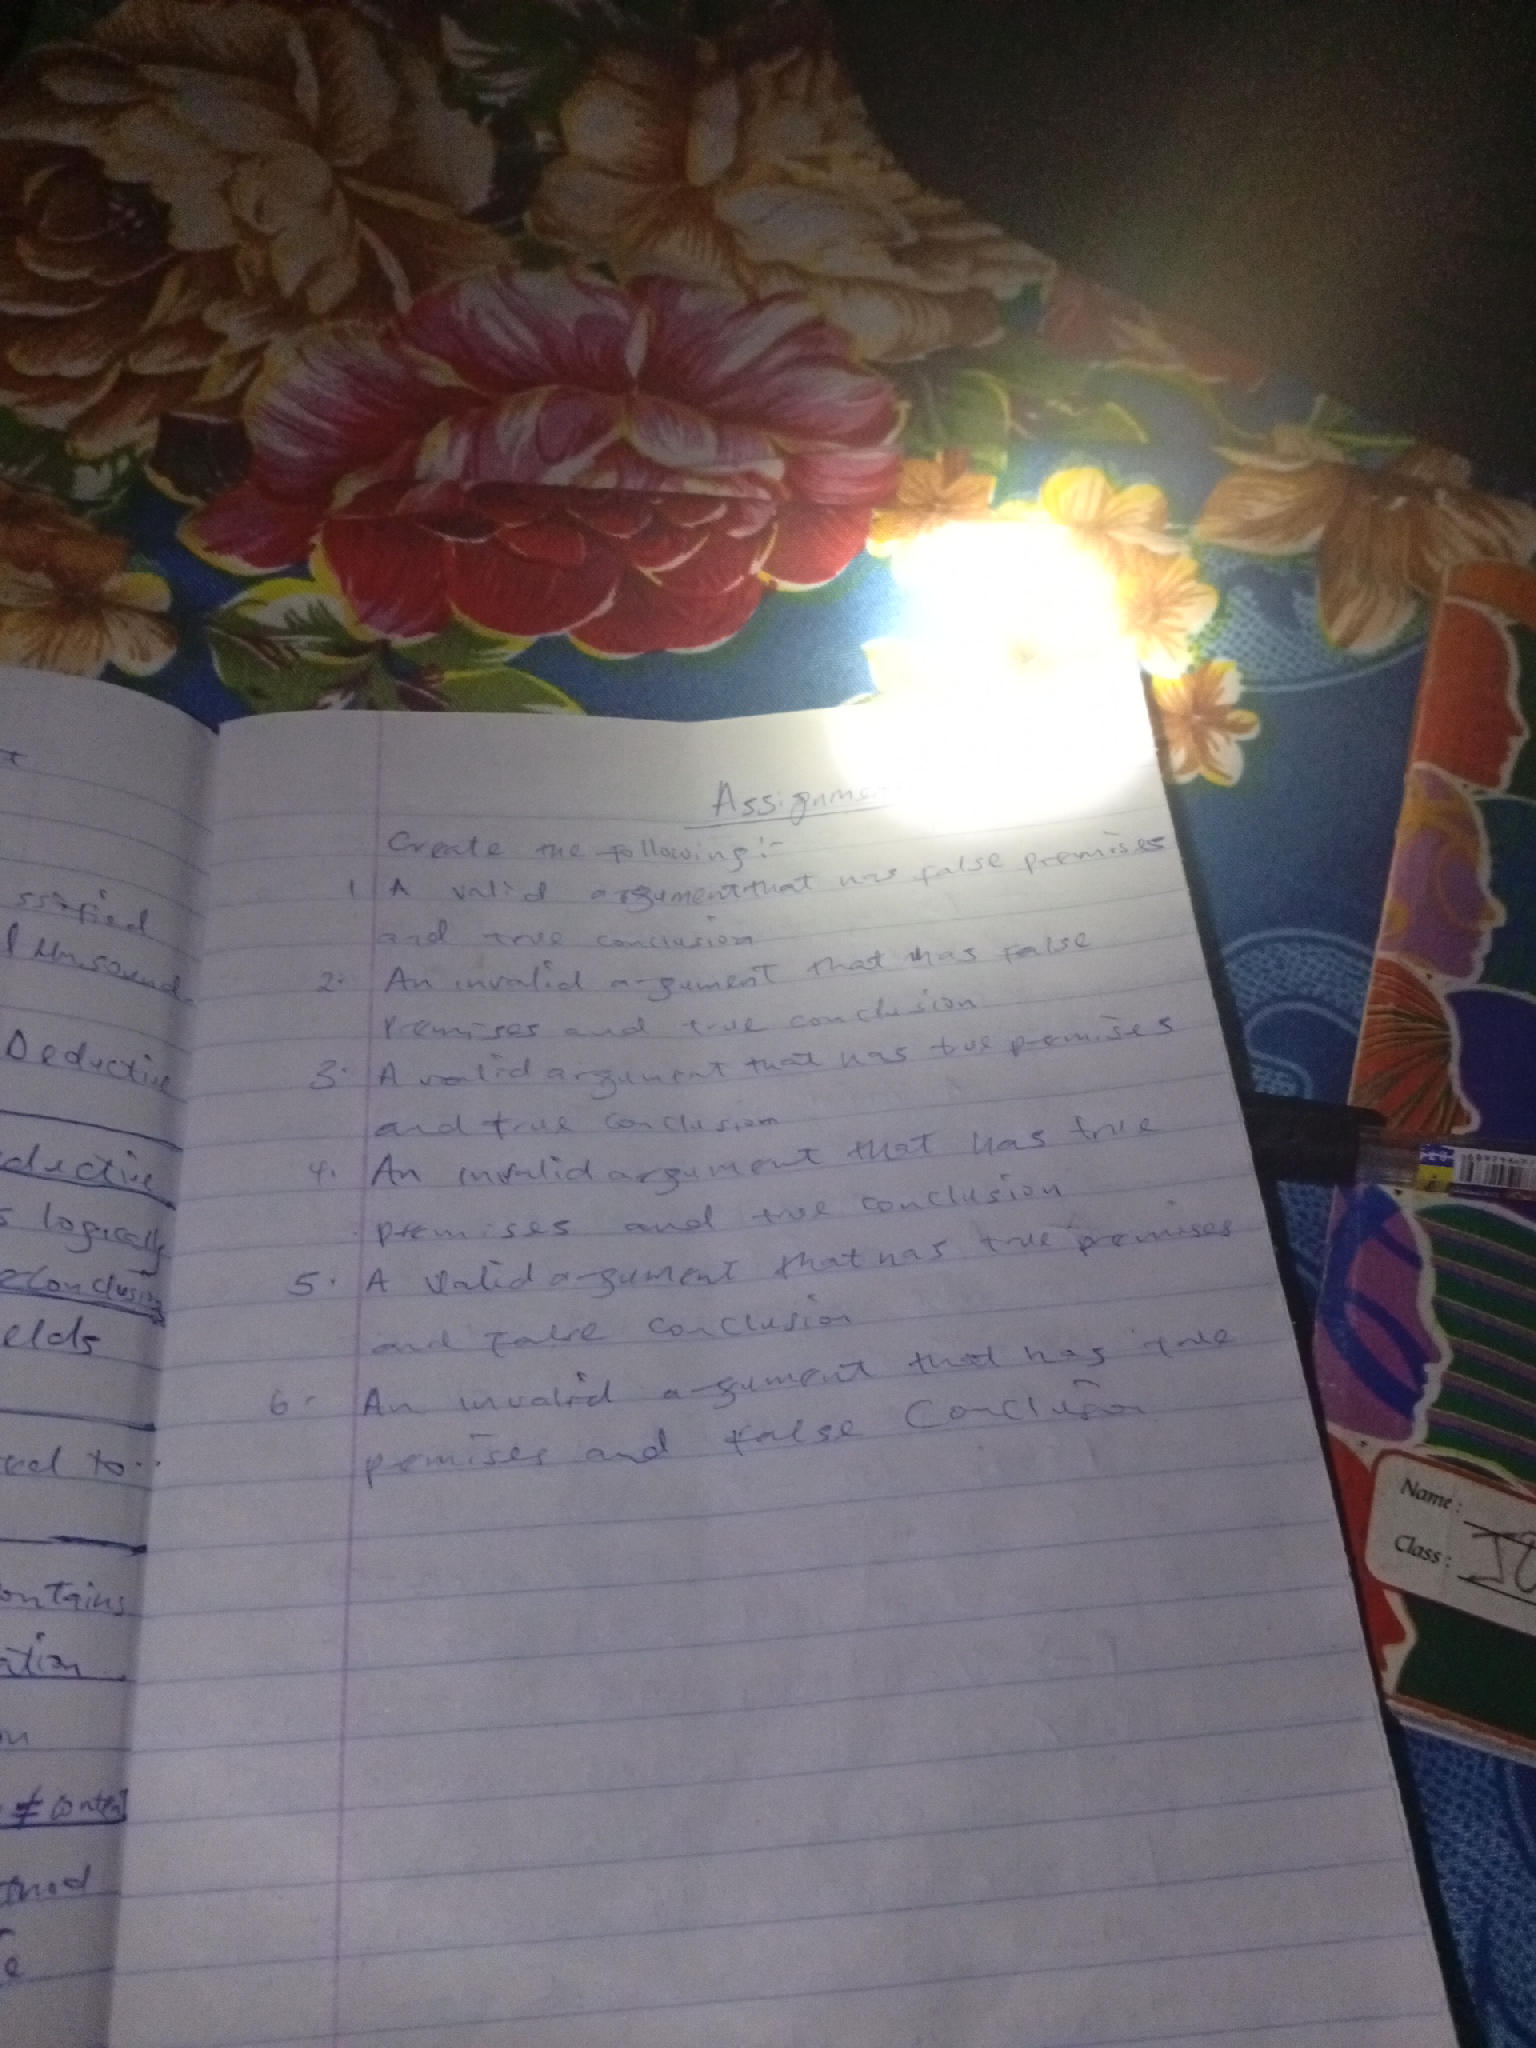 ssified
Deductive
ductive
s logically
elds
ontains
≠ conten
Assignmen
Create the following:-
1 A valid argument that has false premises
and true conclusion
2. An invalid argument that has False
Premises and true conclusion
3. A valid argument that has true premises
and true conclusion
4. An invalid argument that has true
premises and true conclusion
5. A valid argument that has true premises
and False conclusion
6. An invalid argument that has true
premises and false Conclusion
Name:
Class: